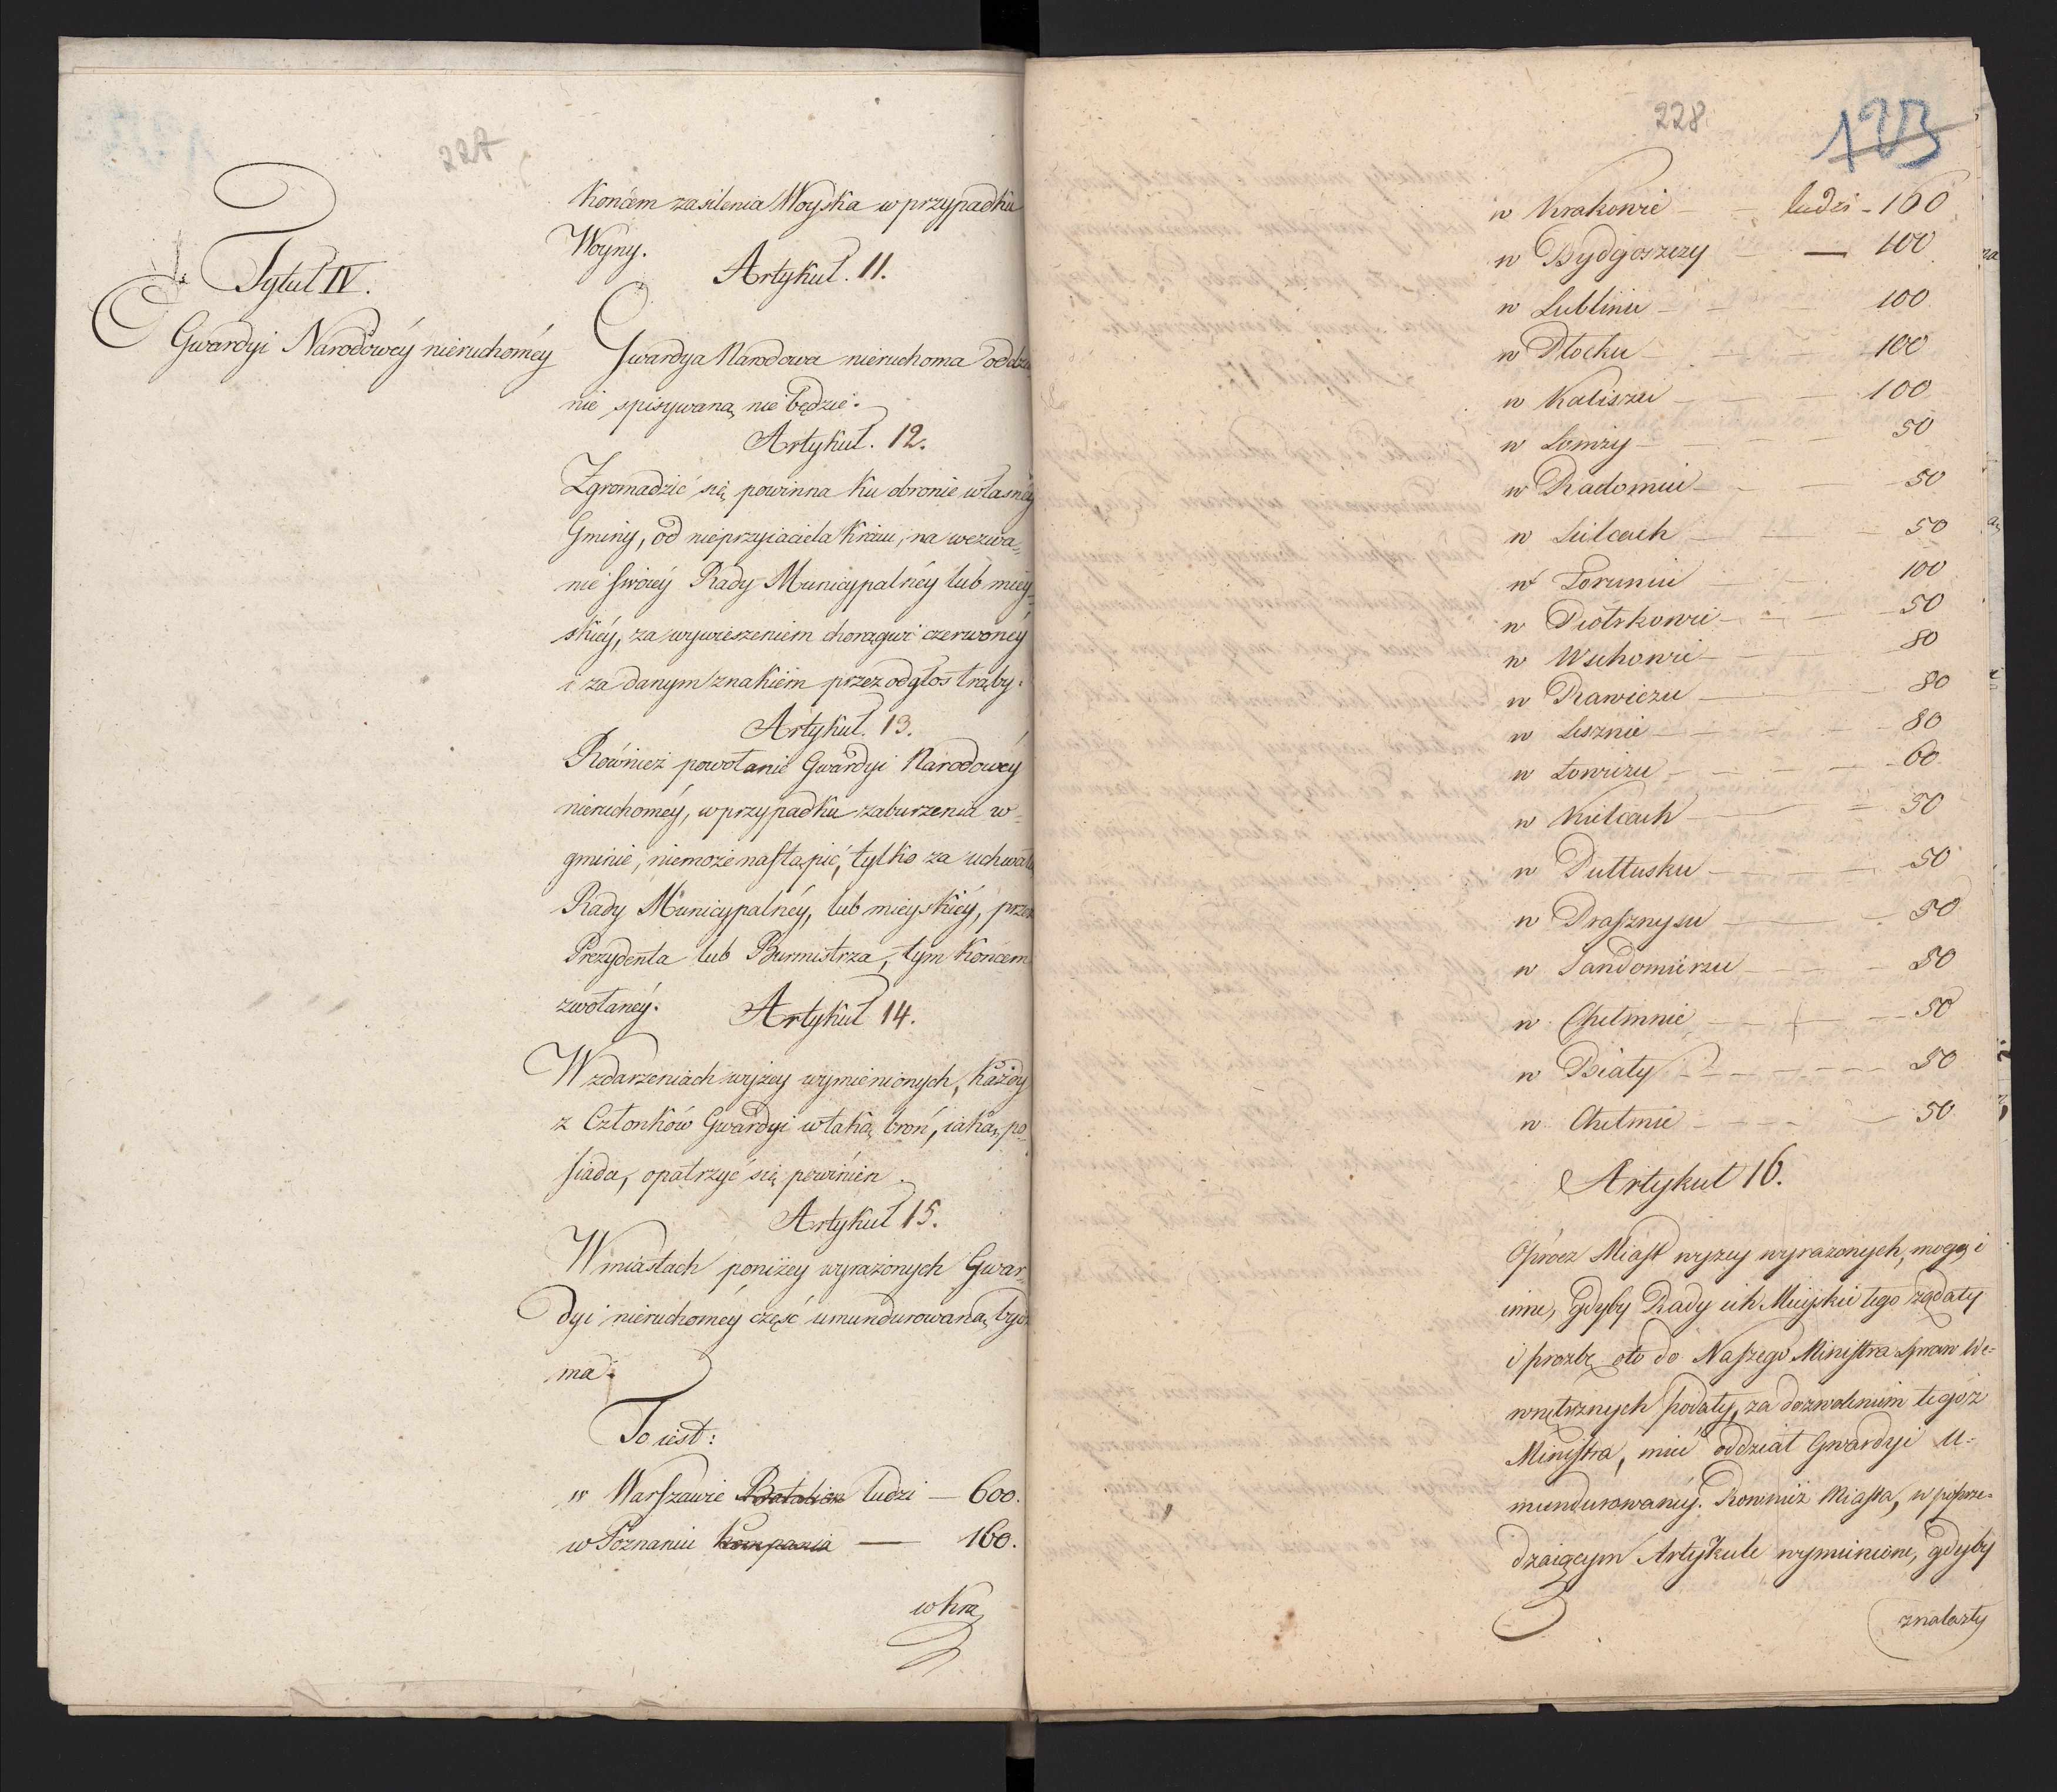 227
Tytuł IV.
O Gwardyi Narodowéy nieruchoméy
Końcem zasilenia Woyska w przypadku
Woyny.
Artykuł. 11.
Gwardya Narodowa nieruchoma oddziel
nie spisywaną nie będzie.
Artykuł. 12.
Zgromadzić się powinna ku obronie własnéy
Gminy, od nieprzyiaciela Kraiu, na wezwa=
nie swoiéy Rady Municypalnéy lub miey=
skiéy, za wywieszeniem chorągwi czerwonéy
i za danym znakiem przez odgłos trąby.
Artykuł. 13.
Również powołanie Gwardyi Narodowéy
nieruchoméy, w przypadku zaburzenia w=
gminie, niemoże nastąpić, tylko za uchwałą
Rady Municypalnéy, lub mieyskiéy, przez
Prezydenta lub Burmistrza, tym Końcem
zwołanéy.
Artykuł 14.
W zdarzeniach wyżey wymienionych, Każdy
z Członków Gwardyi w taką broń, iaką po=
siada, opatrzyć się powinien.
Artykuł 15.
W miastach poniżey wyrażonych Gwar=
dyi nieruchoméy część umundurowaną bydź
ma.
To iest:
w Warszawie Batalion ludzi — 600.
w Poznaniu Kompania — 160.
w Kra
228
123
w Krakowie — — ludzi - 160
w Bydgoszczy — — 100
w Lublinie — — 100
w Płocku — — 100
w Kaliszu — — 100
w Łomży — — 50
w Radomiu — — 50
w Sielcach — — 50
w Toruniu — — 100
w Piotrkowie — — 50
w Wschowie — — 80
w Rawiczu — — 80
w Lesznie — — 80
w Łowiczu — — 60
w Kielcach — — 50
w Pułtusku — — 50
w Prasznyszu — — 50
w Sandomierzu — — 50
w Chełmnie — — 50
w Biały — — 50
w Chełmie — — 50
Artykuł 16.
Oprócz Miast wyżey wyrażonych, mogą i
inne, gdyby Rady ich Mieyskie tego żądały
i prozbę oto do Naszego Ministra Spraw We=
wnętrznych podały, za dozwoleniem tegóż
Ministra, mieć oddział Gwardyi U=
mundurowanéy. Rownież Miasta, w poprze=
dzaiącym Artykule wymienione, gdyby
znalazły